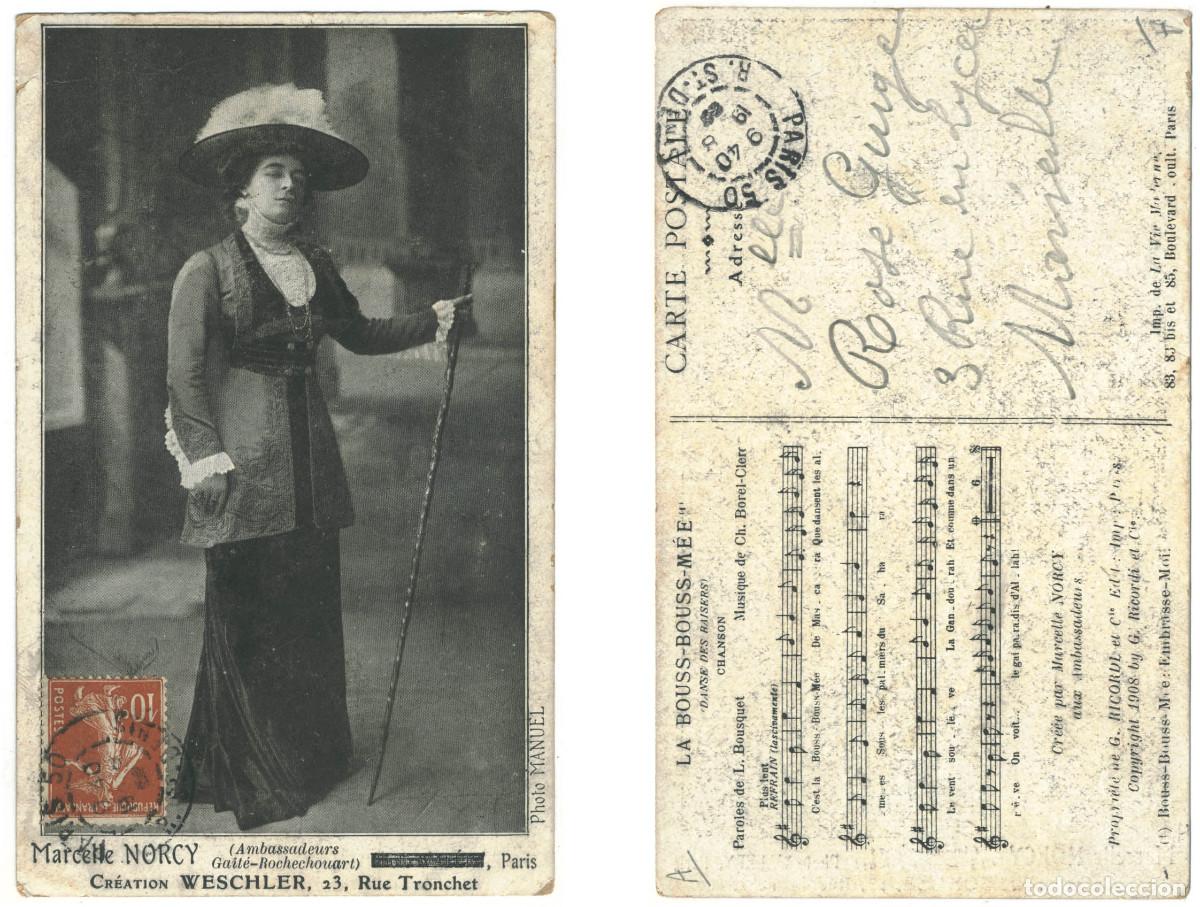 POSTES
10
PARIS 50
Photo MANUEL
Marcelle NORCY (Ambassadeurs Gaîté-Rochechouart) , Paris
CRÉATION WESCHLER, 23, Rue Tronchet
CARTE POSTALE
PARIS 50
R. ST-DE
9 40
19 8
Adresse
Melle
Rose
3 Rue du Lycée
Marseille
Imp. de La Vie Moderne,
83, 83 bis et 85, Boulevard oult. Paris
LA BOUSS-BOUSS-MÉE (1)
(DANSE DES BAISERS)
CHANSON
Paroles de L. Bousquet Musique de Ch. Borel-Clerc
Plus lent
REFRAIN (lascivamente)
C'est la Bouss-Bouss-Mée De Mas . ca . ra Que dansent les al.
. mé . es Sous les pal . miers du Sa . ha . ra
Le vent sou . lè . ve La Gan . dou . rah Et comme dans un
r ê . ve On voit... le gai pa . ra . dis d'Al . lah!
Créée par Marcelle NORCY
aux Ambassadeurs
Propriété de G. RICORDI et Cie Edit. Imp. Paris
Copyright 1908 by G. Ricordi et Cie.
(1) Bouss-Bouss-Mée: Embrasse-Moi!
todocoleccion